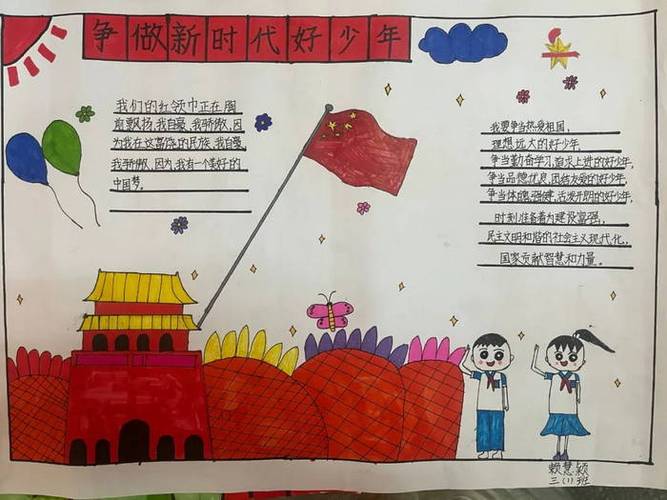 争做新时代好少年
我们的红领巾正在胸
前飘扬，我自豪，我骄傲，因
为我在这富饶的民族，我自豪，
我骄傲，因为，我有一个美好的
中国梦。
我要争当热爱祖国，
理想远大的好少年
争当勤奋学习，追求上进的好少年，
争当品德优良，团结友爱的好少年，
争当体魄强健，活泼开朗的好少年，
时刻准备着为建设富强、
民主文明和谐的社会主义现代化、
国家贡献智慧和力量。
赖慧颖
三（1）班